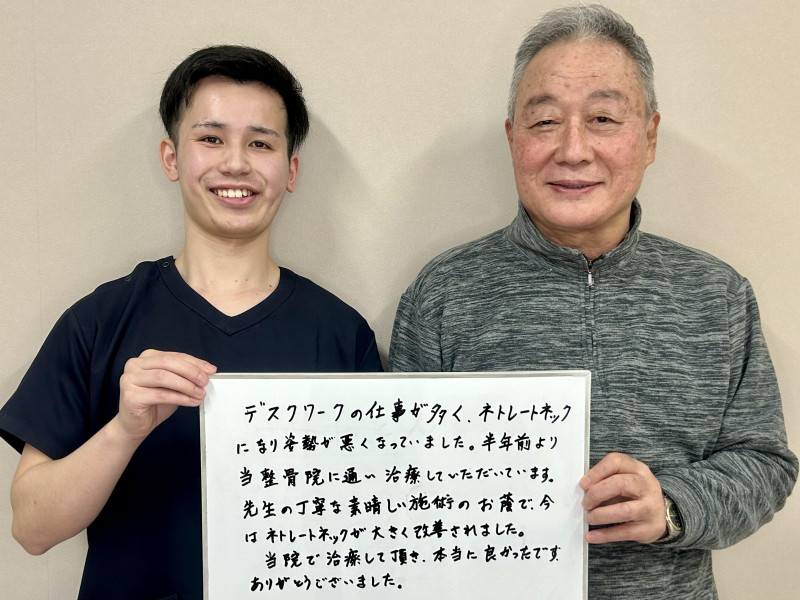 デスクワークの仕事が多く、ネトレートネック
になり姿勢が悪くなっていました。半年前より
当整骨院に通い治療していただいています。
先生の丁寧な素晴しい施術のお蔭で、今
はネトレートネックが大きく改善されました。
当院で治療して頂き、本当に良かったです。
ありがとうございました。